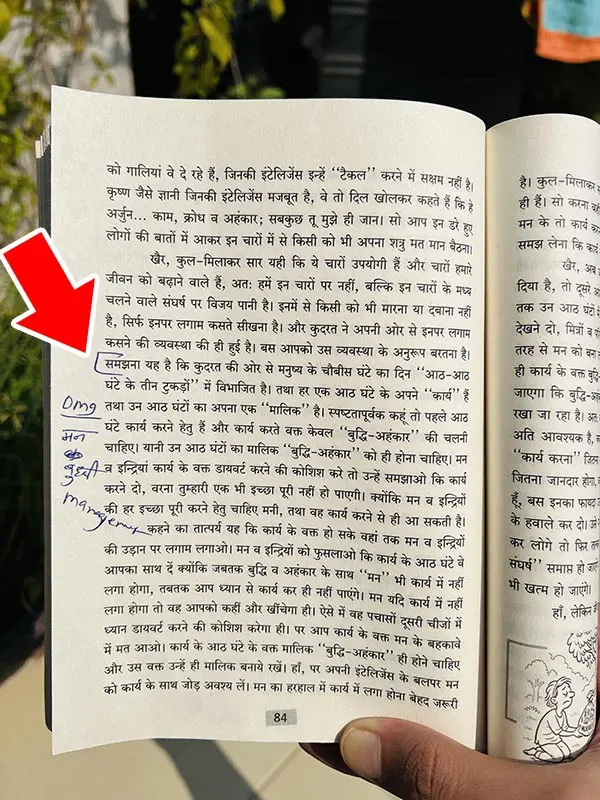 को गालियां वे दे रहे हैं, जिनकी इंटेलिजेंस इन्हें ‘‘टैकल’’ करने में सक्षम नहीं है।
कृष्ण जैसे ज्ञानी जिनकी इंटेलिजेंस मजबूत है, वे तो दिल खोलकर कहते हैं कि हे
अर्जुन... काम, क्रोध व अहंकार; सबकुछ तू मुझे ही जान। सो आप इन डरे हुए
लोगों की बातों में आकर इन चारों में से किसी को भी अपना शत्रु मत मान बैठना।
खैर, कुल-मिलाकर सार यही कि ये चारों उपयोगी हैं और चारों हमारे
जीवन को बढ़ाने वाले हैं, अतः हमें इन चारों पर नहीं, बल्कि इन चारों के मध्य
चलने वाले संघर्ष पर विजय पानी है। इनमें से किसी को भी मारना या दबाना नहीं
है, सिर्फ इनपर लगाम कसते सीखना है। और कुदरत ने अपनी ओर से इनपर लगाम
कसने की व्यवस्था की ही हुई है। बस आपको उस व्यवस्था के अनुरूप बरतना है।
समझना यह है कि कुदरत की ओर से मनुष्य के चौबीस घंटे का दिन ‘‘आठ-आठ
घंटे के तीन टुकड़ों’’ में विभाजित है। तथा हर एक आठ घंटे के अपने ‘‘कार्य’’ हैं
तथा उन आठ घंटों का अपना एक ‘‘मालिक’’ है। स्पष्टतापूर्वक कहूं तो पहले आठ
घंटे कार्य करने हेतु हैं और कार्य करते वक्त केवल ‘‘बुद्धि-अहंकार’’ की चलनी
चाहिए। यानी उन आठ घंटों का मालिक ‘‘बुद्धि-अहंकार’’ को ही होना चाहिए। मन
व इन्द्रियां कार्य के वक्त डायवर्ट करने की कोशिश करे तो उन्हें समझाओ कि कार्य
करने दो, वरना तुम्हारी एक भी इच्छा पूरी नहीं हो पाएगी। क्योंकि मन व इन्द्रियों
की हर इच्छा पूरी करने हेतु चाहिए मनी, तथा वह कार्य करने से ही आ सकती है।
कहने का तात्पर्य यह कि कार्य के वक्त हो सके वहां तक मन व इन्द्रियों
की उड़ान पर लगाम लगाओ। मन व इन्द्रियों को फुसलाओ कि कार्य के आठ घंटे वे
आपका साथ दें क्योंकि जबतक बुद्धि व अहंकार के साथ ‘‘मन’’ भी कार्य में नहीं
लगा होगा, तबतक आप ध्यान से कार्य कर ही नहीं पाएंगे। मन यदि कार्य में नहीं
लगा होगा तो वह आपको कहीं और खींचेगा ही। ऐसे में वह पचासों दूसरी चीजों में
ध्यान डायवर्ट करने की कोशिश करेगा ही। पर आप कार्य के वक्त मन के बहकावे
में मत आओ। कार्य के आठ घंटे के वक्त मालिक ‘‘बुद्धि-अहंकार’’ ही होने चाहिए
और उस वक्त उन्हें ही मालिक बनाये रखें। हाँ, पर अपनी इंटेलिजेंस के बलपर मन
को कार्य के साथ जोड़ अवश्य लें। मन का हरहाल में कार्य में लगा होना बेहद जरूरी
84
मन
management
है। कुल-मिलाकर
ही हैं। सो करना वही
मन के तो कार्य कर
समझ लेना कि कार्य
खैर, अब
दिया है, तो दूसरे आ
तक उन आठ घंटों
देखने दो, मित्रों व प
तरह से मन को बना
ही कार्य के वक्त बुद्धि
जाएगा कि बुद्धि-अहं
रखा जा रहा है। अतः
अति आवश्यक है,
‘‘कार्य करना’’ जितना
जितना जानदार होगा,
हूँ, बस इनका फायदा
के हवाले कर दो। उसे
कर लोगे तो फिर त
संघर्ष’’ समाप्त हो जाएं
भी खत्म हो जाएंगे।
हाँ, लेकिन